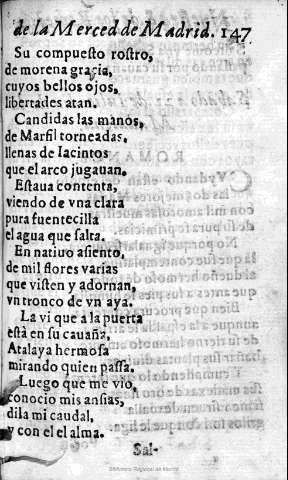 de la Merced de Madrid. 147
Su compuesto rostro,
de morena gracia,
cuyos bellos ojos,
libertades atan.
Candidas las manos,
de Marfil torneadas,
llenas de Iacintos
que el arco jugauan.
Estaua contenta,
viendo de vna clara
pura fuentecilla
el agua que salta.
En natiuo asiento,
de mil flores varias
que visten y adornan,
vn tronco de vn aya.
La vi que a la puerta
està en su cauaña,
Atalaya hermosa
mirando quien passa.
Luego que me vio,
conocio mis ansias,
dila mi caudal,
y con el el alma.
Sal-
Biblioteca Regional de Madrid